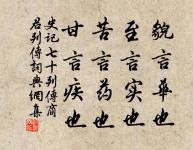 貌言華也
至言实也
苦言药也
甘言疾也
史记七十列傳商
君列傳詞典網集